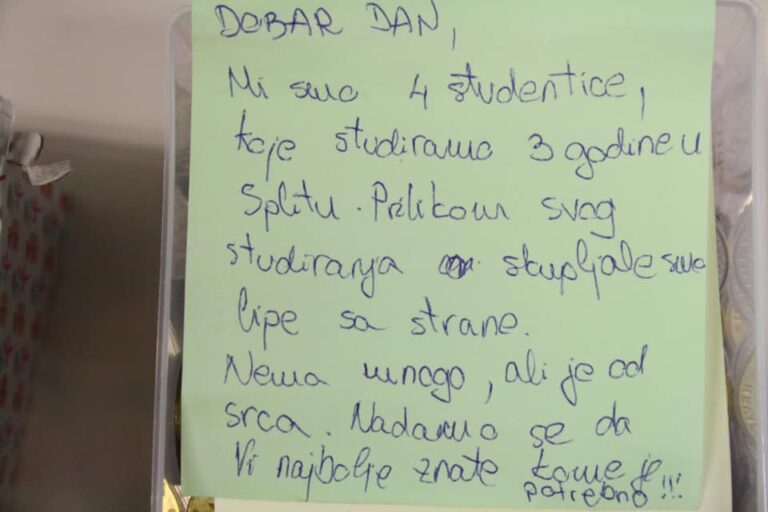 DOBAR DAN,
Mi smo 4 studentice,
koje studiramo 3 godine u
Splitu. Prilikom svog
studiranja skupljale smo
lipe sa strane.
Nema mnogo, ali je od
srca. Nadamo se da
Vi najbolje znate kome je
potrebno!!!